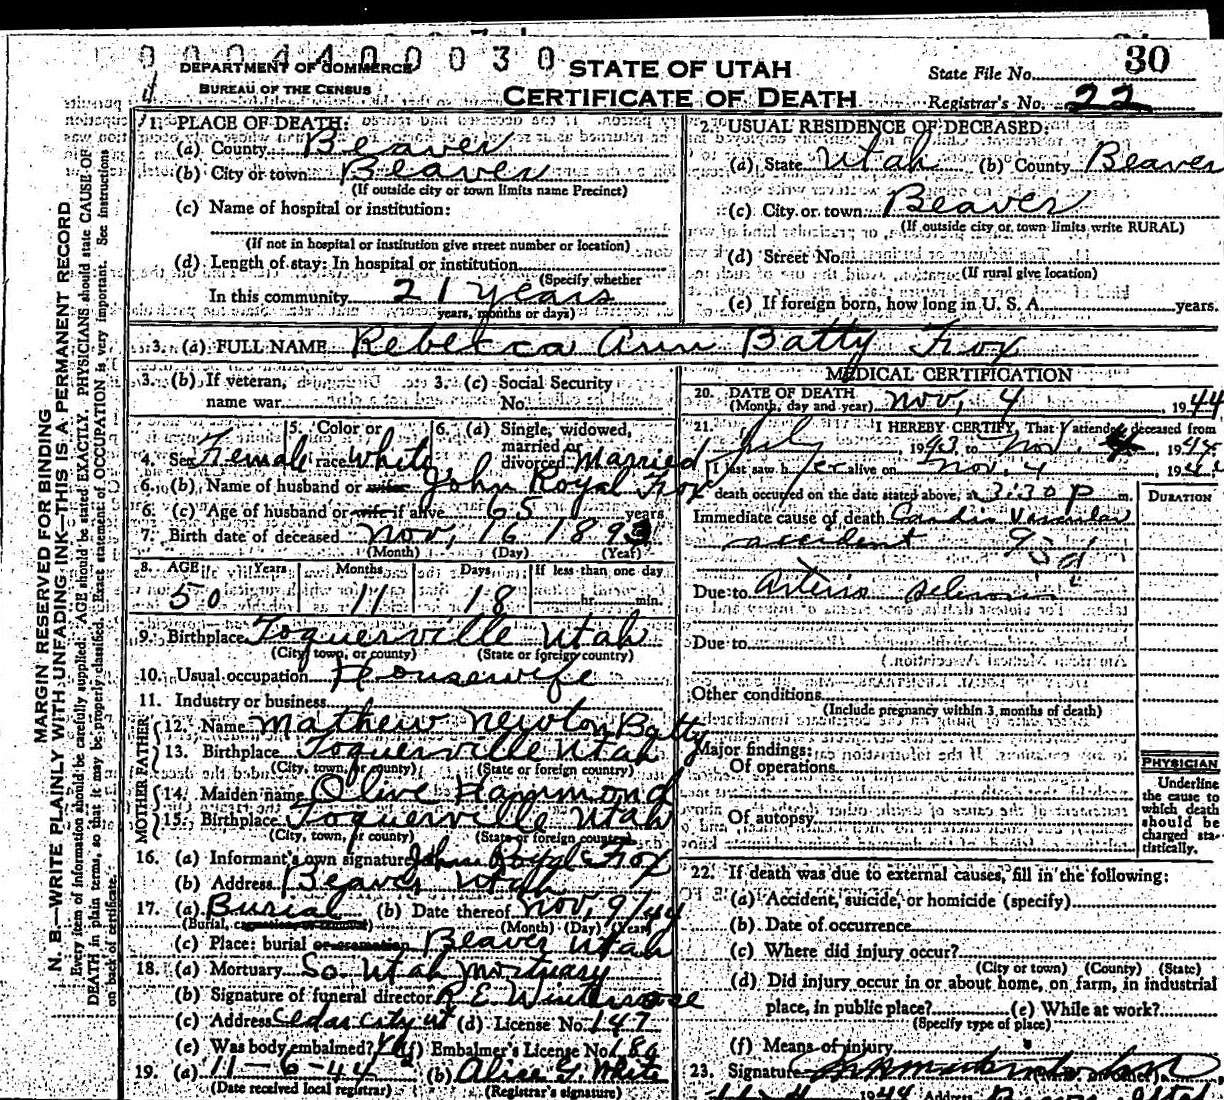 000440030
DEPARTMENT OF COMMERCE
BUREAU OF THE CENSUS
STATE OF UTAH
CERTIFICATE OF DEATH
State File No. 30
Registrar's No. 22
MARGIN RESERVED FOR BINDING
N. B.—WRITE PLAINLY WITH UNFADING INK—THIS IS A PERMANENT RECORD
Every item of information should be carefully supplied. AGE should be stated EXACTLY. PHYSICIANS should state CAUSE OF
DEATH in plain terms, so that it may be properly classified. Exact statement of OCCUPATION is very important. See instructions
on back of certificate.
1. PLACE OF DEATH:
(a) County Beaver
(b) City or town Beaver
(If outside city or town limits name Precinct)
(c) Name of hospital or institution:
(If not in hospital or institution give street number or location)
(d) Length of stay: In hospital or institution
(Specify whether
In this community 21 years
years, months or days)
2. USUAL RESIDENCE OF DECEASED:
(a) State Utah (b) County Beaver
(c) City or town Beaver
(If outside city or town limits write RURAL)
(d) Street No.
(If rural give location)
(e) If foreign born, how long in U. S. A. years.
3. (a) FULL NAME Rebecca Ann Batty Fox
3. (b) If veteran, name war
3. (c) Social Security No.
4. Sex Female
5. Color or race White
6. (a) Single, widowed, married or divorced Married
6. (b) Name of husband or wife John Royal Fox
6. (c) Age of husband or wife if alive 65 years
7. Birth date of deceased Nov, 16 1893
(Month) (Day) (Year)
8. AGE Years Months Days If less than one day
50 11 18 hr. min.
9. Birthplace Toquerville Utah
(City, town, or county) (State or foreign country)
10. Usual occupation Housewife
11. Industry or business
FATHER
12. Name Mathew Newton Batty
13. Birthplace Toquerville Utah
(City, town, or county) (State or foreign country)
MOTHER
14. Maiden name Olive Hammond
15. Birthplace Toquerville Utah
(City, town, or county) (State or foreign country)
16. (a) Informant's own signature John Royal Fox
(b) Address Beaver Utah
17. (a) Burial (b) Date thereof Nov, 9/44
(Burial, cremation, or removal) (Month) (Day) (Year)
(c) Place: burial or cremation Beaver Utah
18. (a) Mortuary So. Utah Mortuary
(b) Signature of funeral director
(c) Address Cedar City Ut (d) License No. 147
(e) Was body embalmed? Yes (f) Embalmer's License No. 186
19. (a) 11-6-44 (b) Alice G. White
(Date received local registrar) (Registrar's signature)
MEDICAL CERTIFICATION
20. DATE OF DEATH
(Month, day and year) Nov, 4, 1944
21. I HEREBY CERTIFY, That I attended deceased from
July, 1943, to Nov. 4, 1944.
I last saw her alive on Nov. 4, 1944
death occurred on the date stated above, at 3:30 P m.
DURATION
Immediate cause of death Cardio Vascular
accident
Due to Arterio
Due to
Other conditions
(Include pregnancy within 3 months of death)
Major findings:
Of operations
Of autopsy
PHYSICIAN
Underline
the cause to
which death
should be
charged sta-
tistically.
22. If death was due to external causes, fill in the following:
(a) Accident, suicide, or homicide (specify)
(b) Date of occurrence
(c) Where did injury occur?
(City or town) (County) (State)
(d) Did injury occur in or about home, on farm, in industrial
place, in public place? (e) While at work?
(Specify type of place)
(f) Means of injury
23. Signature
1944 Address